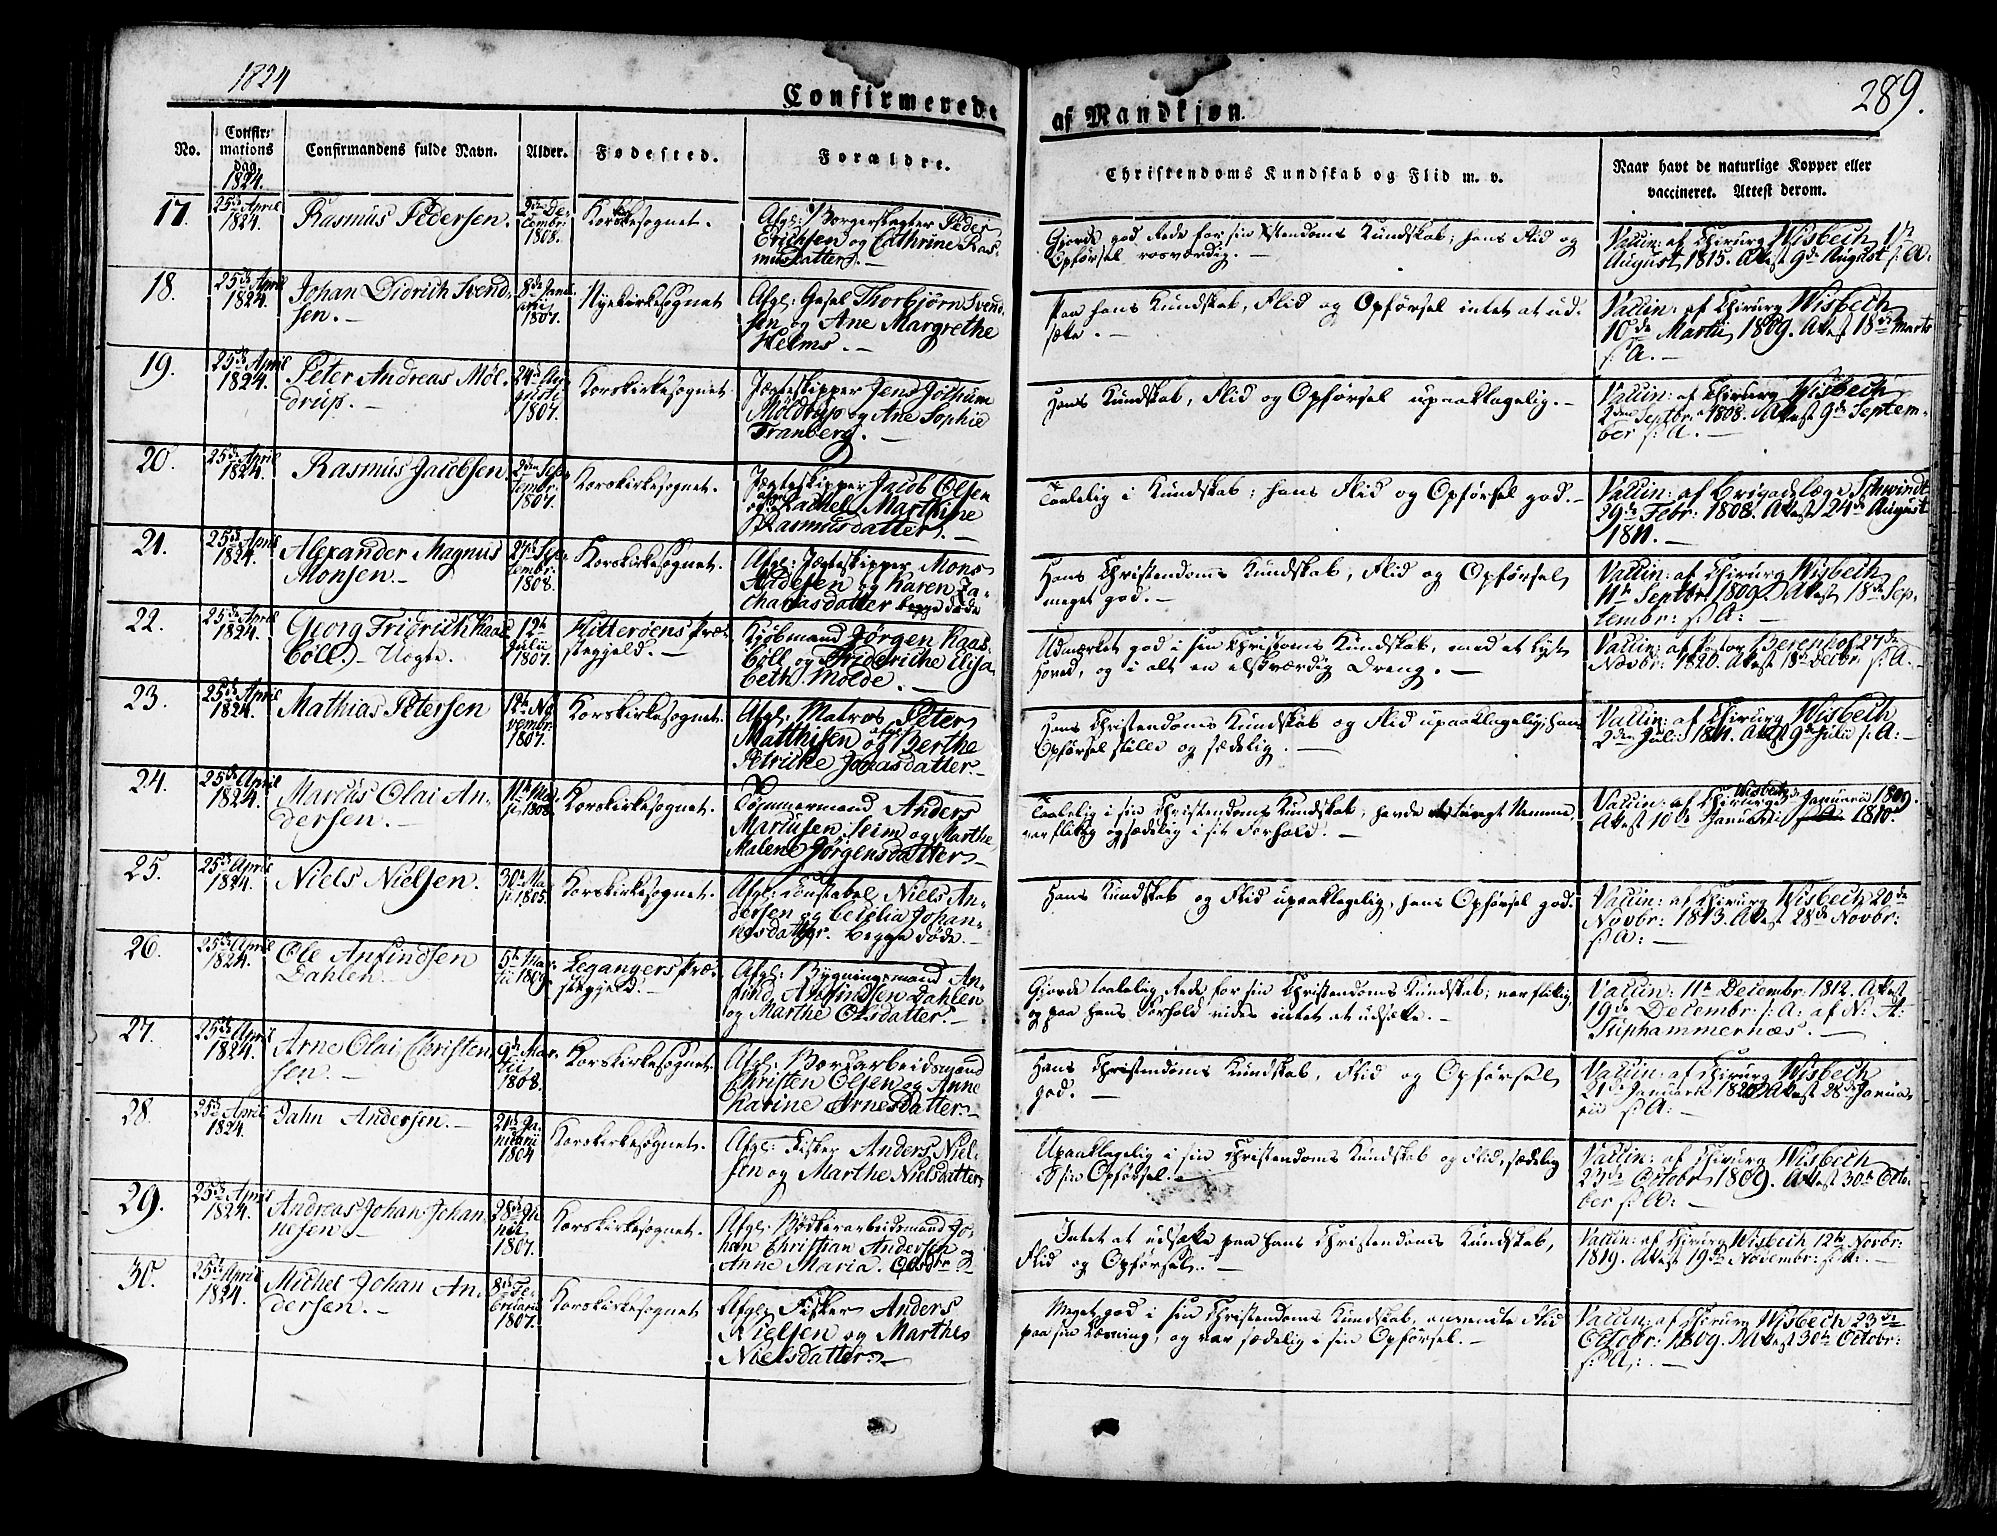 1824
289.
Confirmerede
af Mandkjøn.
No.
Confir:
mations
dag
1824.
Confirmandens fulde Navn.
Alder.
Fødested.
Forældre.
Christendoms Kundskab og Flid m. v.
Naar havt de naturlige Kopper eller
vaccineret. Attest derom.
17.
25de April
1824.
Rasmus Pedersen.
cembr:
1808.
Korskirkesognet.
Afgl: Borgerskapter Peder
Erichsen og Cathrine Ras-
musdatter. -
Gjorde god Rede for sin Xstendoms Kundskab; hans Flid og
Opførsel rosværdig. -
Vaccin: af Chirurg Wisbech 1te
August 1815. Attest 9de August s: A:
18.
25de April
1824.
Johan Didrich Svend-
sen. -
8de Janu-
arii
1807.
Nyekirkesognet
Afgl: Gesel Thorbjørn Svend-
sen og Ane Margrethe
Helms. -
Paa hans Kundskab, Flid og Opførsel intet at ud-
sætte. -
Vaccin: af Chirurg Wisbech
16de Martii 1809. Attest 18de Marts
s: A. -
19.
25de April
1824.
Peter Andreas Mol-
drup. -
24de Au-
gusti
1807.
Korskirkesognet.
Jægteskipper Jens Jochum
Moldrup og Ane Sophie
Tranberg. -
Hans Kundskab, Flid og Opførsel upaaklagelig. -
Vaccin: af Chirurg Wisbech
2den Septbr: 1808. Attest 9de Septem-
ber s: A. -
20.
25de April
1824.
Rasmus Jacobsen.
2den Sep-
tembr:
1807.
Korskirkesognet.
Jægteskipper Jacob Olsen
og Rachel Marthine
Rasmusdatter. -
Taalelig i Kundskab; hans Flid og Opførsel god. -
Vaccin: af Brigadlæge Schwindt
29de Febr: 1808. Attest 24de August
1811. -
21.
25de April
1824.
Alexander Magnus
Monsen. -
27de Sep-
tembr:
1808.
Korskirkesognet.
Afgl: Jægteskipper Mons
Andersen og Karen Za-
chariasdatter begge døde
Hans Christendoms Kundskab, Flid og Opførsel
meget god. -
Vaccin: af Chirurg Wisbech
11te Septbr: 1809. Attest 18de Sep-
tembr: s: A: -
22.
25de April
1824.
Georg Fridrich Kaas
böll. - Uægte.
12te
Julii
1807.
Hitterøens Præ-
stegjeld. -
Kjøbmand Jørgen Kaas-
böll og Frideriche Elisa-
beth Molde. -
Udmærket god i sin Christendoms Kundskab, med et lyst
Hoved, og i alt en elskværdig Dreng. -
Vaccin: af Pastor Berenhof 27de
Novbr: 1820. Attest 18de Decbr: s: A. -
23.
25de April
1824.
Mathias Petersen
12te No-
vembr:
1807.
Korskirkesognet.
Afgl: Matros Peter
Matthisen og Berthe
Petricke Jonasdatter. -
Hans Christendoms Kundskab og Flid upaaklagelig, hans
Opførsel stille og sædelig. -
Vaccin: af Chirurg Wisbech
2den Julii 1811. Attest 9de Julii s: A: -
24.
25de April
1824.
Marcus Olai An-
dersen. -
11te Ma-
ji 1808.
Korskirkesognet.
Tømmermand Anders
Martisen Seim og Marthe
Malene Jørgensdatter. -
Taalelig i sin Christendoms Kundskab, havde et tungt Nemme,
var flittig og sædelig i sit Forhold. -
Vaccin: af Chirurg Wisbech Januarii 1809.
Attest 10de Januarii s: A: 1810.
25.
25de April
1824.
Niels Nielsen.
30te Ma-
ji 1805.
Korskirkesognet.
Afgl: Constabel Niels An-
dersen og Cecilia Johan-
nesdatter. begge døde. -
Hans Kundskab og Flid upaaklagelig, hans Opførsel god.
Vaccin: af Chirurg Wisbech 20de
Novbr: 1813. Attest 28de Novbr:
s: A: -
26.
25de April
1824.
Ole Anfindsen
Dahlen. -
5te Mar-
tii 1809.
Legangers Præ-
stegjeld. -
Afgl: Bygningsmand An-
find Anfindsen Dahlen
og Marthe Olsdatter. -
Gjorde taalelig Rede for sin Christendoms Kundskab; var flittig,
og paa hans Forhold vides intet at udsætte. -
Vaccin: 11te Decembr: 1812. Attest
19de Decembr: s: A: af N: A:
Stiphammernæs. -
27.
25de April
1824.
Arne Olai Christen
sen. -
9de Mar-
tii
1808.
Korskirkesognet.
Afgl: Bordarbeidsmand
Christen Olsen og Anne
Karine Arnesdatter. -
Hans Christendoms Kundskab, Flid og Opførsel
god. -
Vaccin: af Chirurg Wisbech
21de Januarii Attest 28de Janua-
rii s: A: -
28.
25de April
1824.
Jahn Andersen. -
21de Ja-
nuarii
1804
Korskirkesognet.
Afgl: Fisker Anders Niel-
sen og Marthe Nielsdatter.
Upaaklagelig i sin Christendoms Kundskab og Flid, sædelig
i sin Opførsel. -
Vaccin: af Chirurg Wisbech
23de Octobr: 1809. Attest 30te Octo-
ber s: A: -
29.
25de April
1824.
Andreas Johan Johan
nesen. -
28de Ju-
nii
1807.
Korskirkesognet.
Afgl: Bødkerarbeidsmand Jo-
han Christian Andersen og
Anne Maria Olsdtr
Intet at udsætte paa hans Christendoms Kundskab,
Flid og Opførsel. -
Vaccin: af Chirurg Wisbech 12te Novbr:
1819. Attest 19de Novembr: s: A: -
30.
25de April
1824.
Michel Johan An-
dersen. -
8de Fe-
bruarii
1807.
Korskirkesognet
Afgl: Fisker Anders
Nielsen og Marthe
Nielsdatter. -
Meget god i sin Christendoms Kundskab, anvendte Flid
paa sin Læsning, og var sædelig i sin Opførsel. -
Vaccin: af Chirurg Wisbech 23de
Octobr: 1809. Attest 30te Octobr:
s: A: -